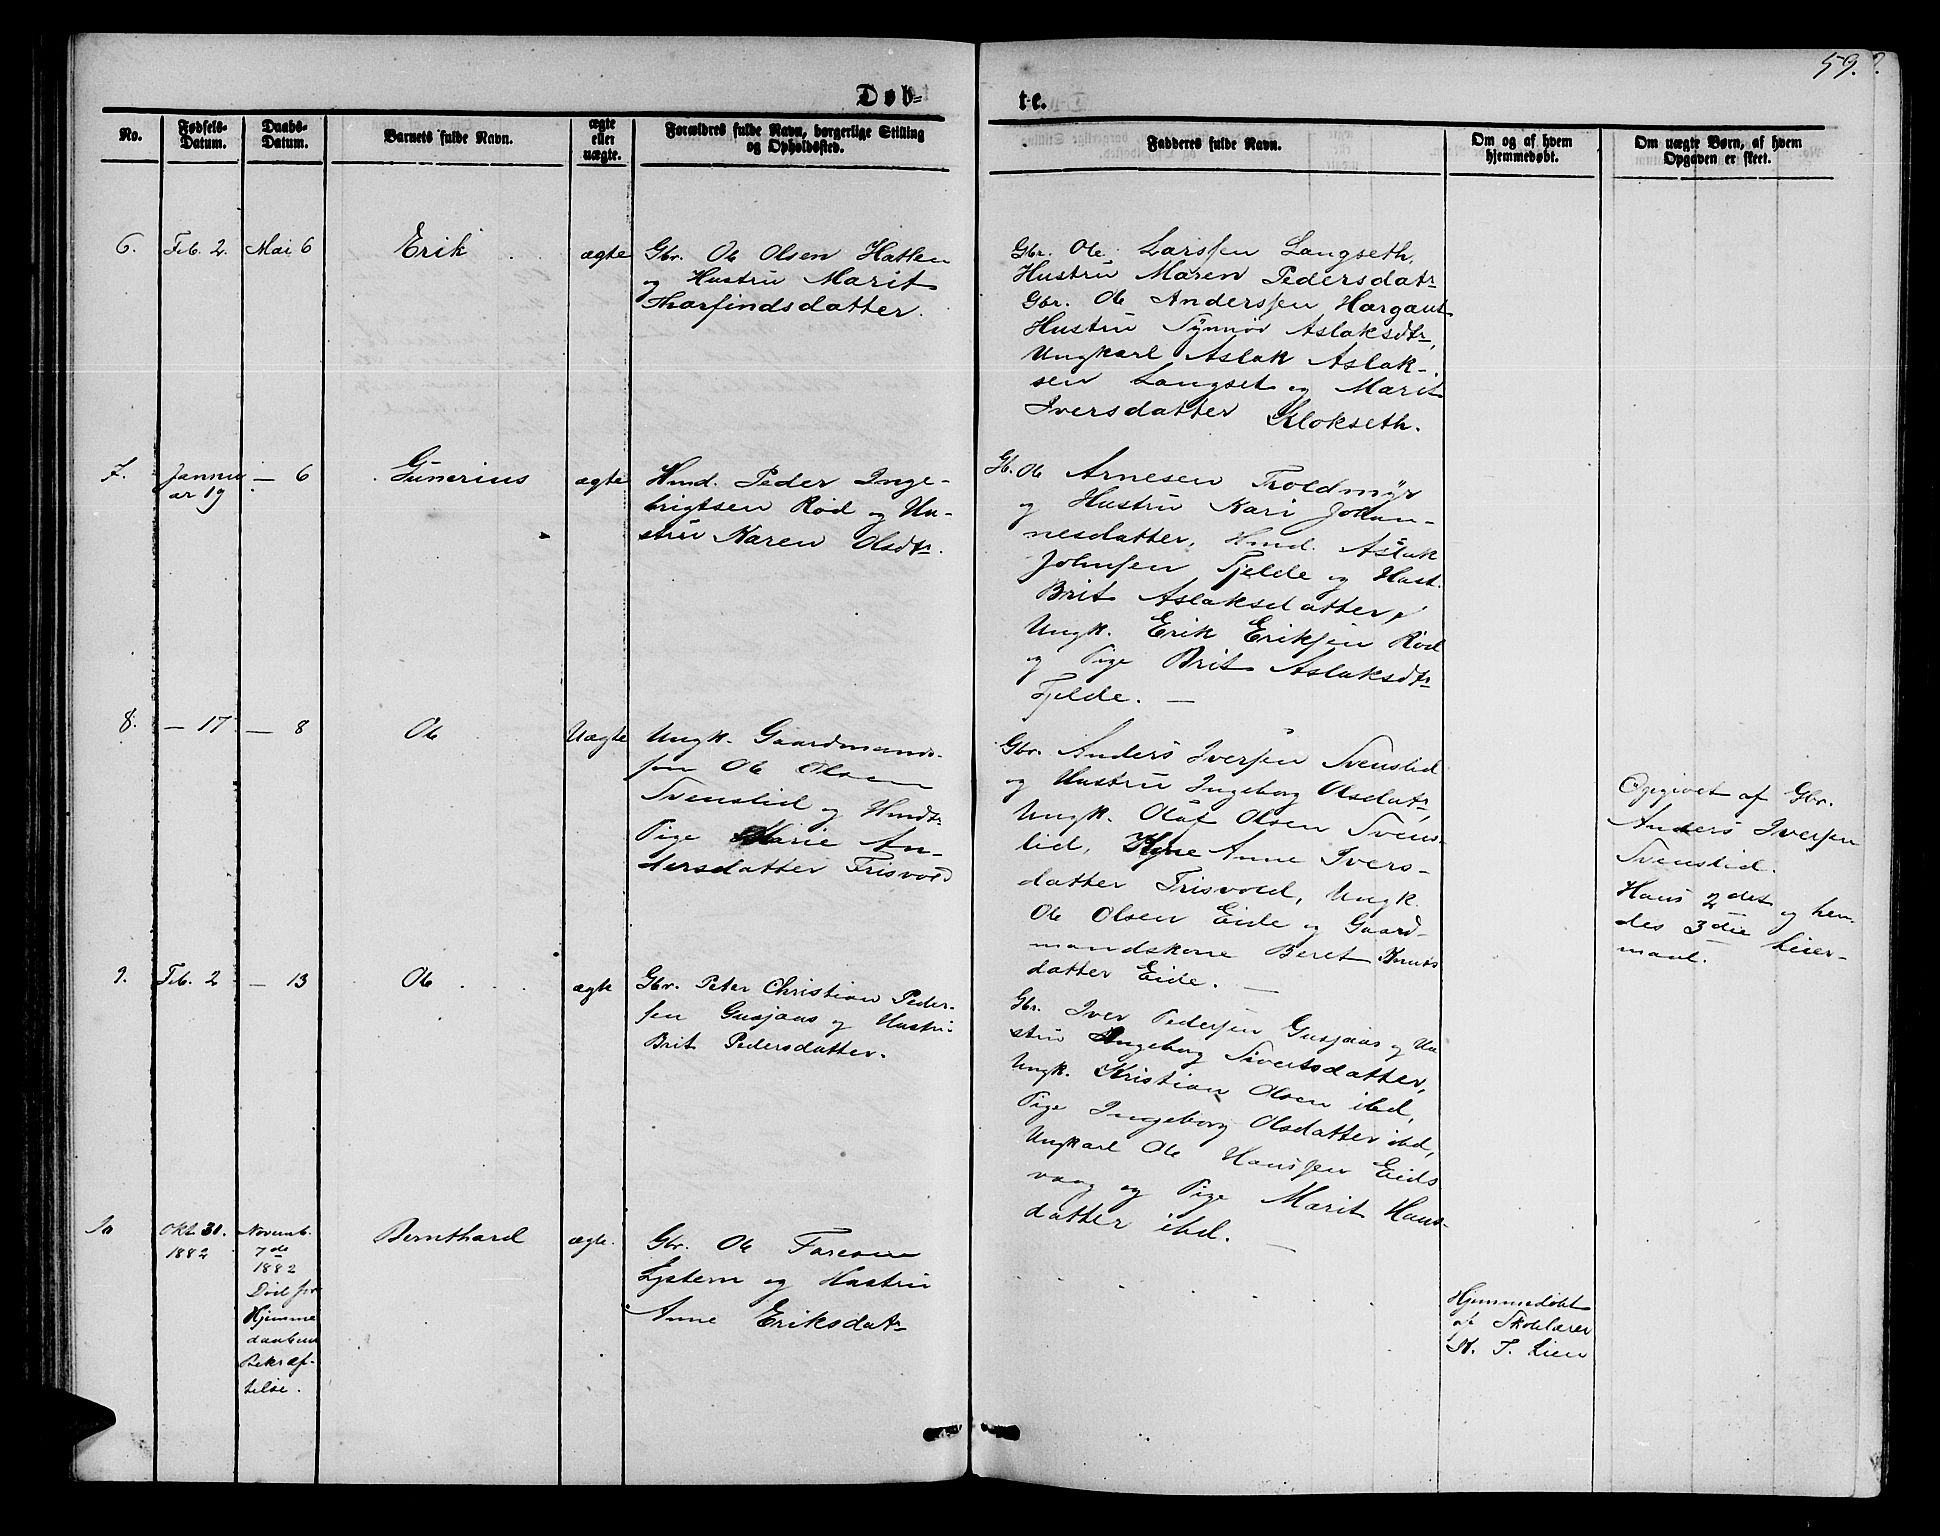 59.
Døb=
te.
No.
Fødsels-
Datum.
Daabs-
Datum.
Barnets fulde Navn.
ægte
eller
uægte.
Forældres fulde Navn, borgerlige Stilling
og Opholdssted.
Fadderes fulde Navn.
Om og af hvem
hjemmedøbt.
Om uægte Børn, af hvem
Opgaven er skeet.
6.
Feb. 2.
Mai 6
Erik
ægte
Gbr. Ole Olsen Hatlen
og Hustru Marit
Thorfindsdatter.
Gbr. Ole Larssen Langseth,
Hustru Maren Pedersdatr
Gbr. Ole Anderssen
Hustru Synnøv Aslaksdtr,
Ungkarl Aslak Aslak-
sen Langset og Marit
Iversdatter Klokseth.
7.
Janu
ar 19
— 6
Gunerius
ægte
Hmd. Peder Inge-
brigtsen Rød og Hu-
stru Karen Olsdtr.
Gb. Ole Arnesen Troldmyr
og Hustru Kari Johan-
nesdatter, Hmd. Aslak
Johnsen Fjelde og Hust.
Brit Aslaksdatter,
Ungk. Erik Eriksen Rød
og Pige Brit Aslaksdtr
Fjelde. —
8.
— 17
— 8
Ole
Uægte
Ungk. Gaardmands-
søn Ole Olsen
Svenslid og Hmds
Pige Marie An-
dersdatter Frisvold
Gbr. Anders Iversen Svenslid
og Hustru Ingeborg Olsdatr,
Ungk. Olaf Olsen Svens-
lid, Anne Ivers-
datter Frisvold, Ungk.
Ole Olsen Eide og Gaard-
mandskone Beret Knuts
datter Eide. —
Opgivet af Gbr.
Anders Iversen
Svenslid.
Hans 2det og hen-
des 3die Leier-
maal.
9.
Feb. 2
— 13
Ole
ægte
Gbr. Peter Christian Peder-
sen Gusjaas og Hustru
Brit Pedersdatter.
Gbr. Iver Pedersen Gusjaas og Hu
stru Ingeborg Sivertsdatter,
Ungk. Kristian Olsen ibd,
Pige Ingeborg Olsdatter ibd,
Ungkarl Ole Hanssen Eids
vaag og Pige Marit Hans-
datter ibd. —
10
Okt. 31.
1882
Novemb.
7de
1882
Død før
Hjemme
daabens
Bekræf-
telse.
Bernthard
ægte.
Gbr. Ole
og Hustru
Anne Eriksdatr
Hjemmedøbt
af Skolelærer
T. Lien